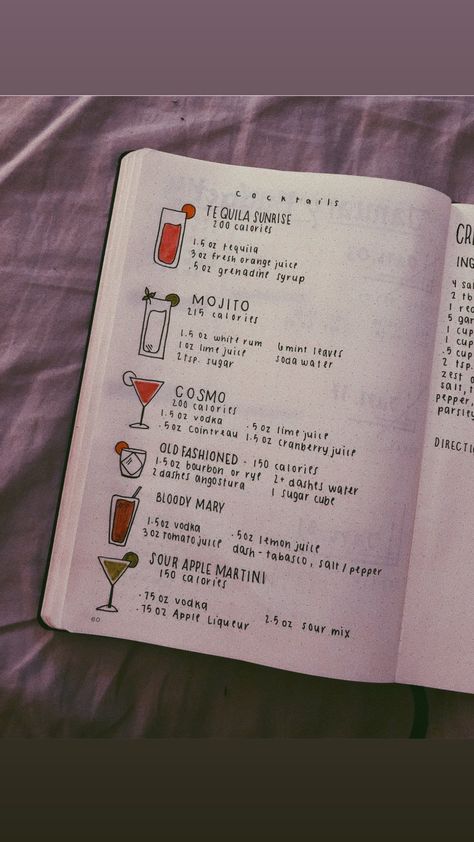 cocktails
TEQUILA SUNRISE
200 calories
1.5 oz tequila
3 oz fresh orange juice
.5 oz grenadine syrup
MOJITO
215 calories
1.5 oz white rum 6 mint leaves
1 oz lime juice soda water
2 tsp. sugar
COSMO
200 calories
1.5 oz vodka .5 oz lime juice
.5 oz Cointreau 1.5 oz cranberry juice
OLD FASHIONED - 150 calories
1.5 oz bourbon or rye 2+ dashes water
2 dashes angostura 1 sugar cube
BLOODY MARY
1.5 oz vodka .5 oz lemon juice
3 oz tomato juice dash - tabasco, salt/pepper
SOUR APPLE MARTINI
150 calories
.75 oz vodka
.75 oz Apple Liqueur 2.5 oz sour mix
60
CR
ING
4 sal
2 tb
1 re
5 gar
1 cup
1 cup
.5 cup
2 tsp.
zest o
salt, t
pepper,
parsley
DIRECTI